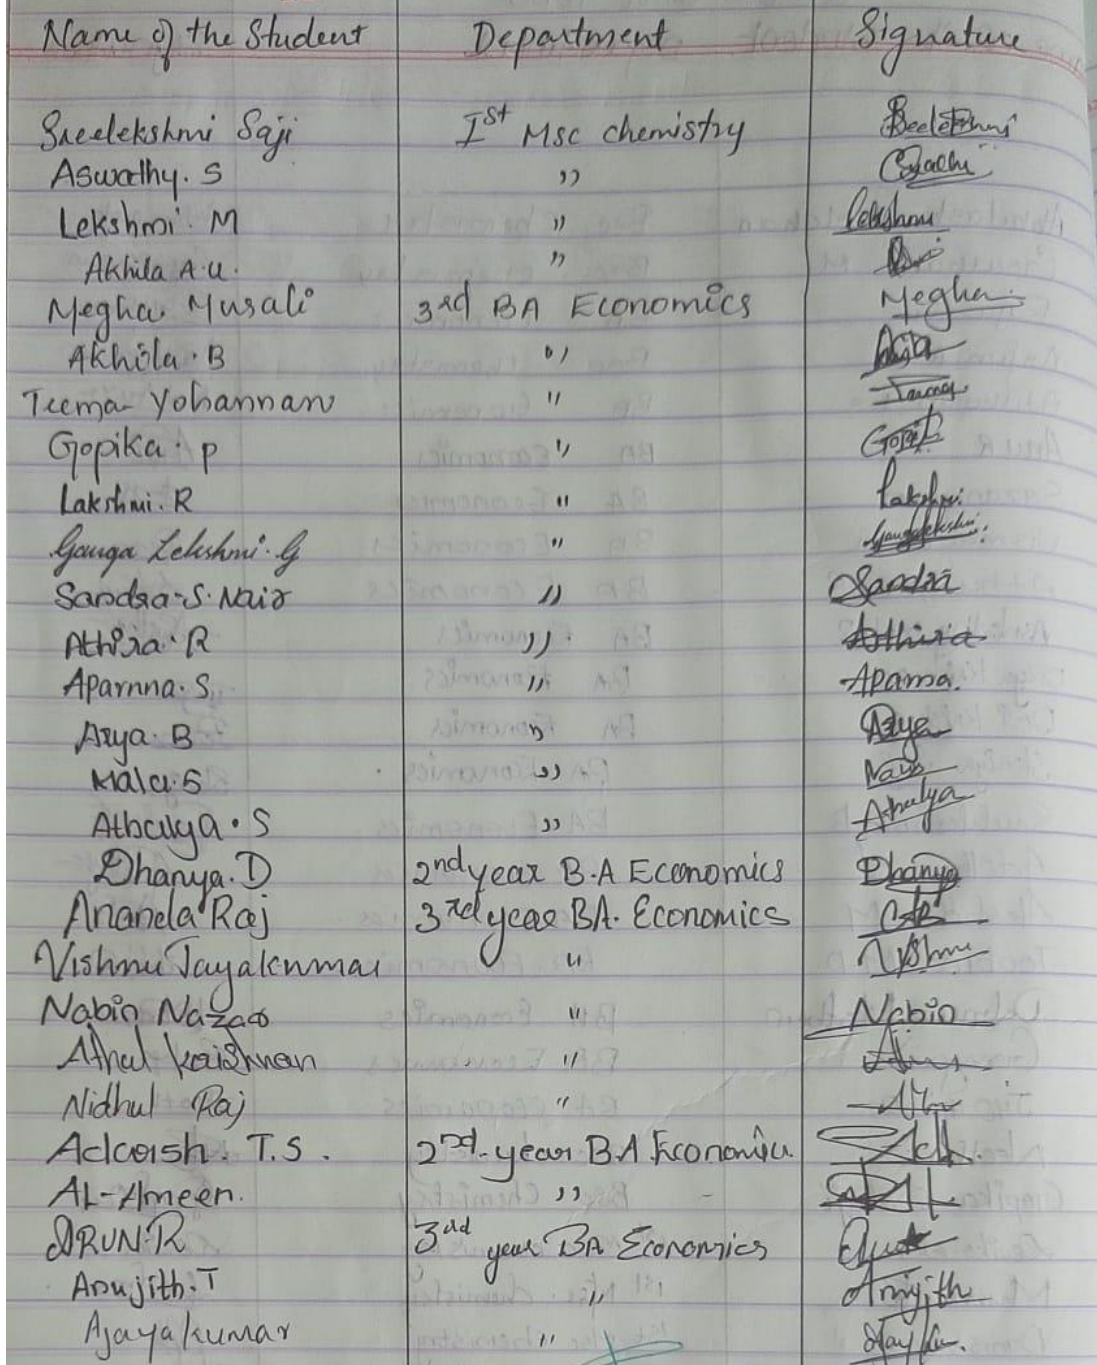 Name of the Student Department Signature
Sreelekshmi Saji Ist Msc chemistry
Aswathy. S ,, 
Lekshmi. M ,, Lekshmi
Akhila A.U. ,,
Megha Murali 3rd BA Economics Megha
Akhila. B ,,
Teema Yohannan ,,
Gopika. P ,, Gopik
Lakshmi. R ,, Lakshmi
Ganga Lekshmi. G ,, Gangalekshmi
Sandra. S. Nair ,, Sandra
Athira. R ,, Athira
Aparnna. S ,, Aparna.
Arya. B ,, Arya
Mala. S ,,
Athulya. S ,, Athulya
Dhanya. D 2nd year B.A Economics Dhanya
Ananda Raj 3rd year BA. Economics
Vishnu Jayakumar ,, Vishnu
Nabin Nazar ,, Nabin
Athul Krishnan ,,
Nidhul Raj ,,
Adarsh. T.S. 2nd year BA Economics
AL-Ameen. ,,
ARUN. R 3rd year BA Economics
Anujith. T ,, Anujith
Ajayakumar ,,